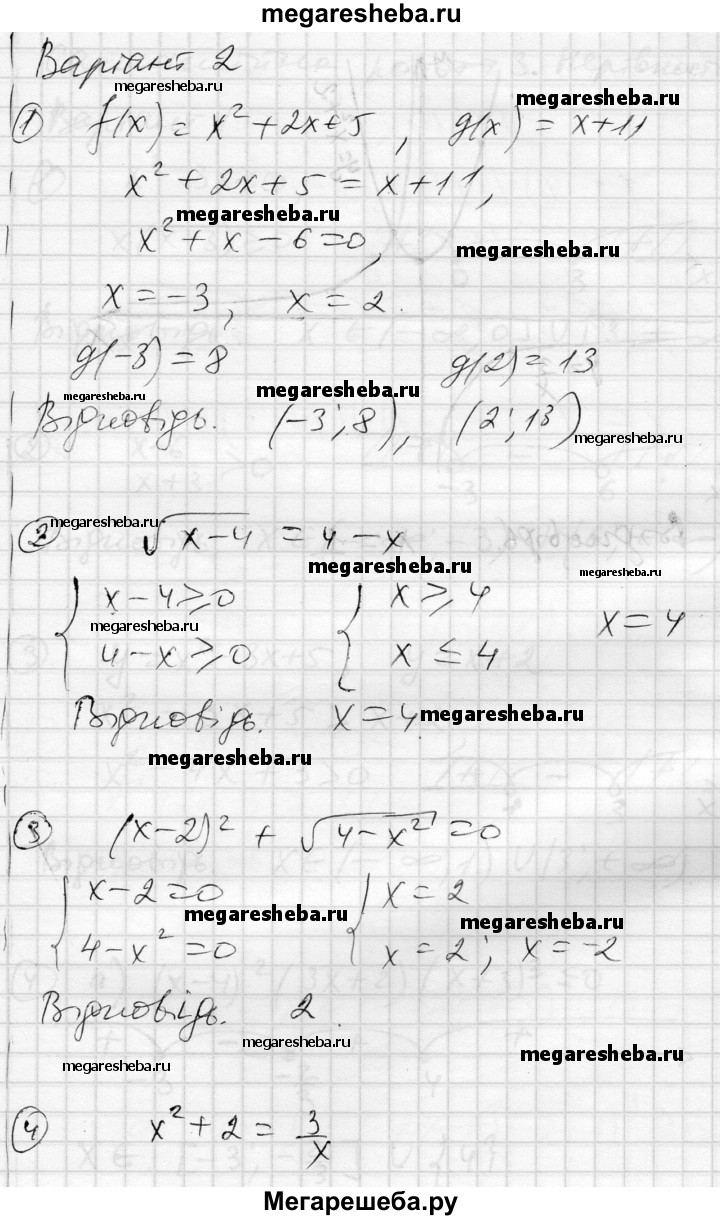 megaresheba.ru
Варіант 2
megaresheba.ru
megaresheba.ru
① f(x) = x² + 2x + 5 , g(x) = x + 11
x² + 2x + 5 = x + 11,
megaresheba.ru
x² + x − 6 = 0,
megaresheba.ru
x = −3, x = 2.
g(−3) = 8 g(2) = 13
megaresheba.ru
megaresheba.ru
Відповідь. (−3; 8), (2; 13)
megaresheba.ru
megaresheba.ru
② √(x−4) = 4 − x
megaresheba.ru
megaresheba.ru
{ x − 4 ≥ 0 { x ≥ 4 x = 4
megaresheba.ru
4 − x ≥ 0 x ≤ 4
Відповідь. x = 4
megaresheba.ru
megaresheba.ru
③ (x−2)² + √(4−x²) = 0
{ x − 2 = 0 { x = 2
megaresheba.ru
megaresheba.ru
4 − x² = 0 x = 2; x = −2
Відповідь. 2.
megaresheba.ru
megaresheba.ru
megaresheba.ru
④ x² + 2 = 3/x
Мегарешеба.ру